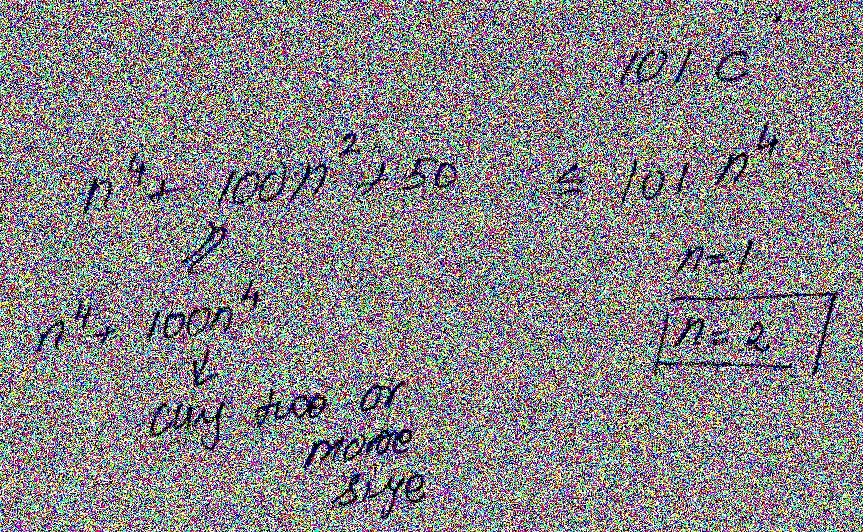 101 C
n⁴ + 100n² + 50 ≤ 101 n⁴
n = 1
n⁴ + 100n⁴
n = 2
any two or
more
size